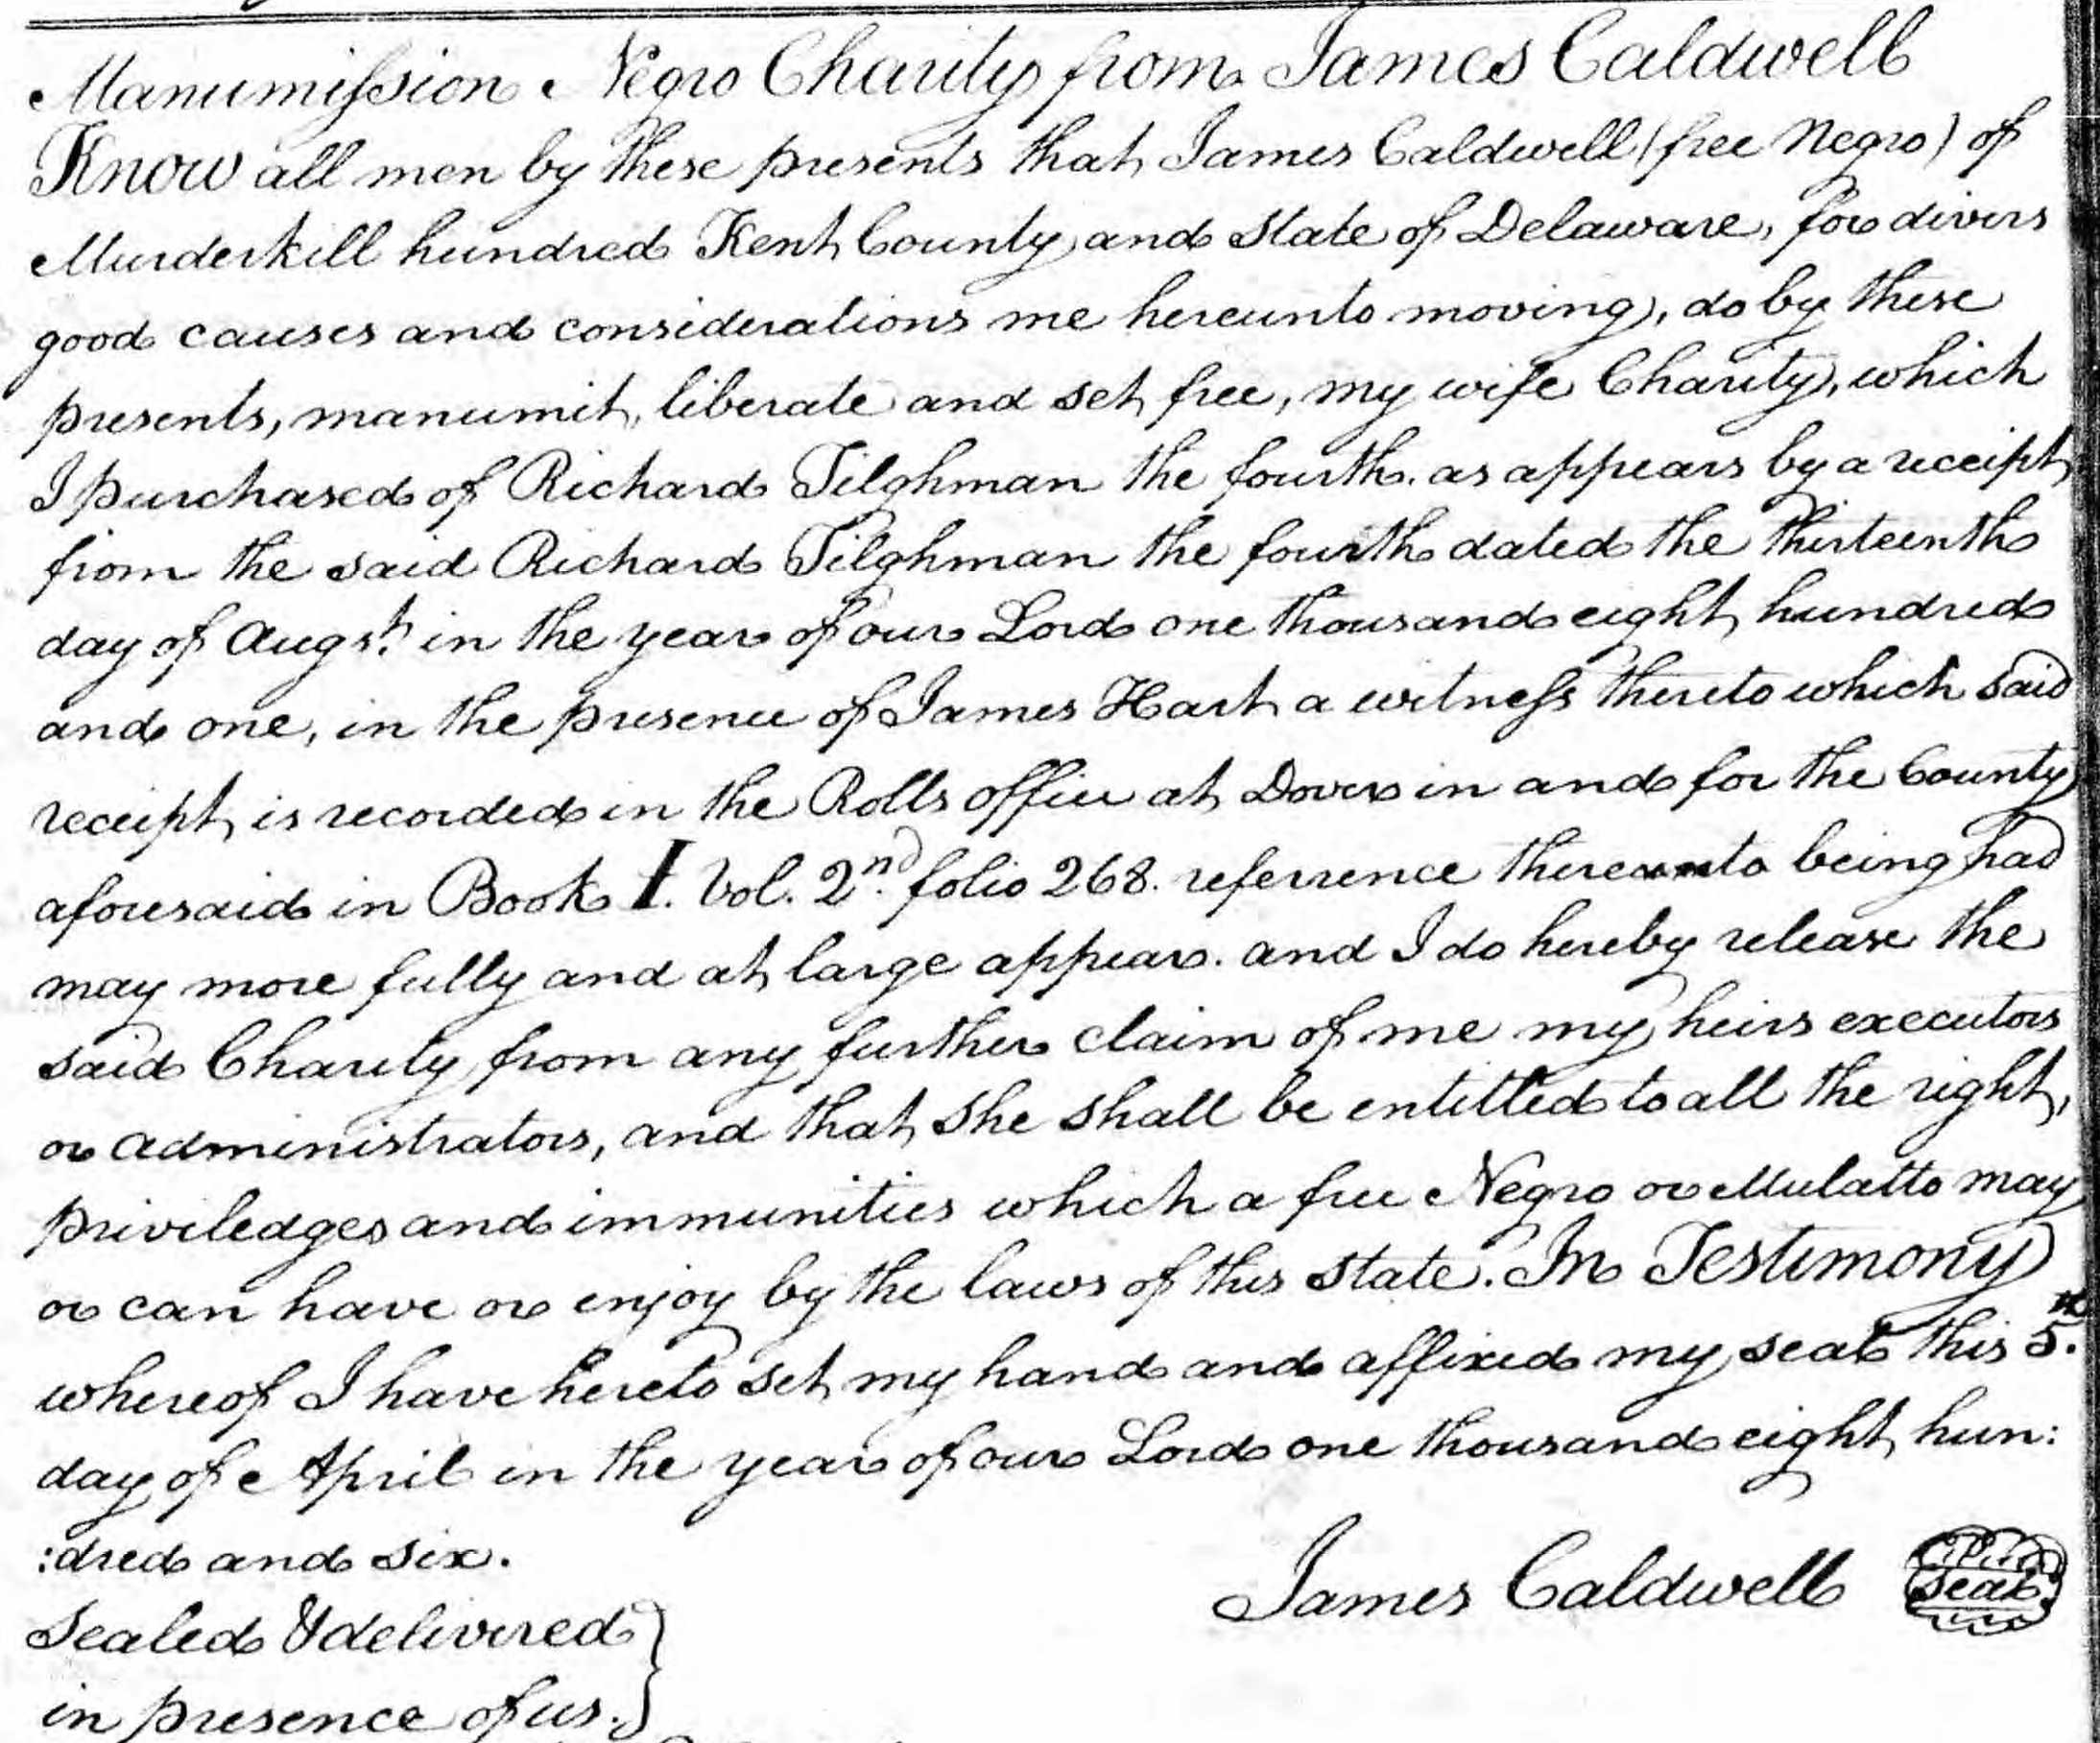 Manumission Negro Charity from James Caldwell
Know all men by these presents that James Caldwell (free Negro) of
Murderkill hundred Kent County and State of Delaware, for divers
good causes and considerations me hereunto moving, do by these
presents, manumit, liberate and set free, my wife Charity, which
I purchased of Richard Tilghman the fourth. as appears by a receipt
from the said Richard Tilghman the fourth dated the thirteenth
day of Augst. in the year of our Lord one thousand eight hundred
and one, in the presence of James Hart a witness thereto which said
receipt is recorded in the Rolls office at Dover in and for the County
aforesaid in Book I. Vol. 2nd. folio 268. referrence thereunto being had
may more fully and at large appear. and I do hereby release the
said Charity from any further claim of me my heirs executors
or administrators, and that she shall be entitled to all the right,
priviledges and immunities which a free Negro or Mulatto may
or can have or enjoy by the laws of this State. In Testimony
whereof I have hereto set my hand and affixed my seal this 5th.
day of April in the year of our Lord one thousand eight hun:
:dred and six.
James Caldwell Seal
Sealed & delivered
in presence of us.